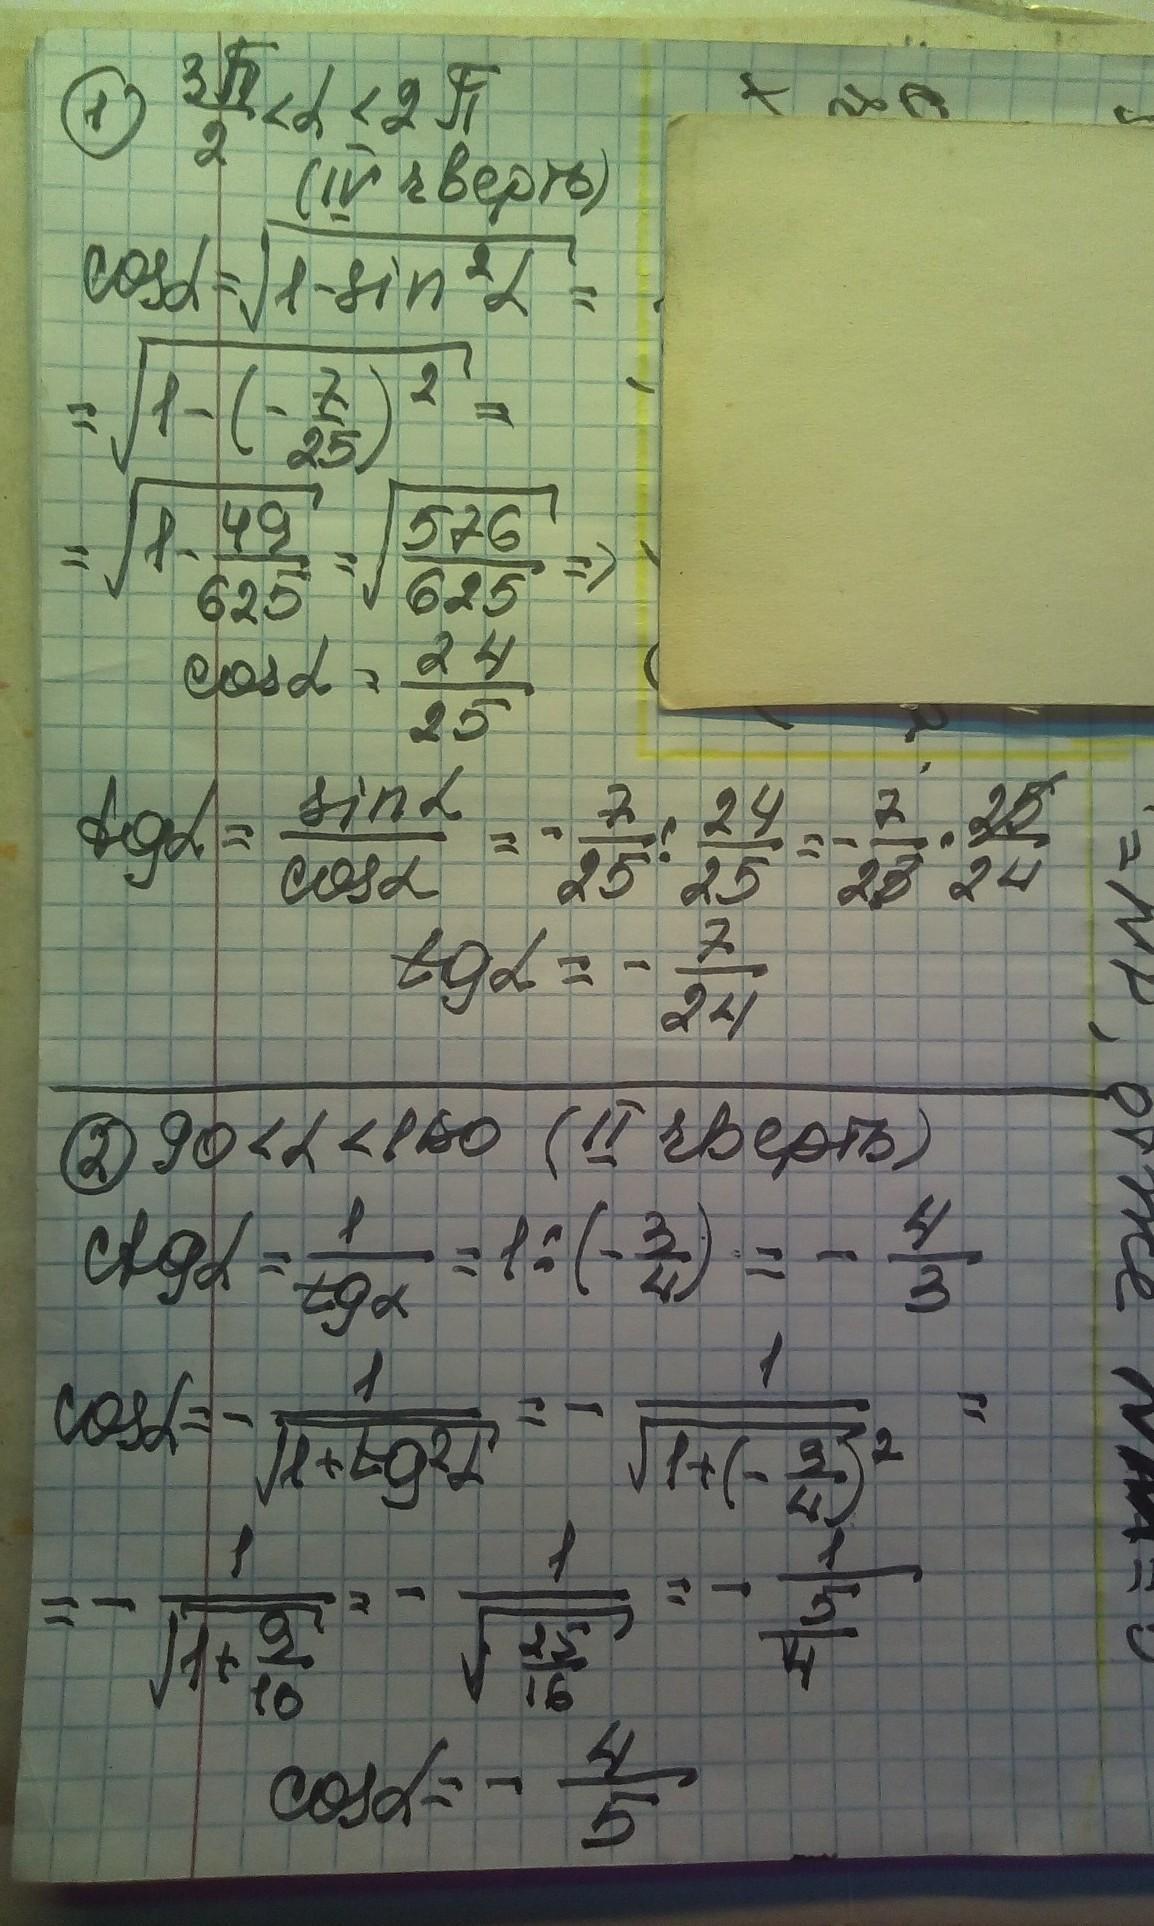 ① 3π/2 < α < 2π
(IV чверть)
cosα = √(1 - sin²α) =
= √(1 - (-7/25)²) =
= √(1 - 49/625) = √(576/625) =>
cosα = 24/25
tgα = sinα/cosα = -7/25 : 24/25 = -7/25 · 25/24
tgα = -7/24
② 90 < α < 180 (II чверть)
ctgα = 1/tgα = 1 : (-3/4) = -4/3
cosα = -1/√(1+tg²α) = -1/√(1+(-3/4)²) =
= -1/√(1+9/16) = -1/√(25/16) = -1/(5/4)
cosα = -4/5